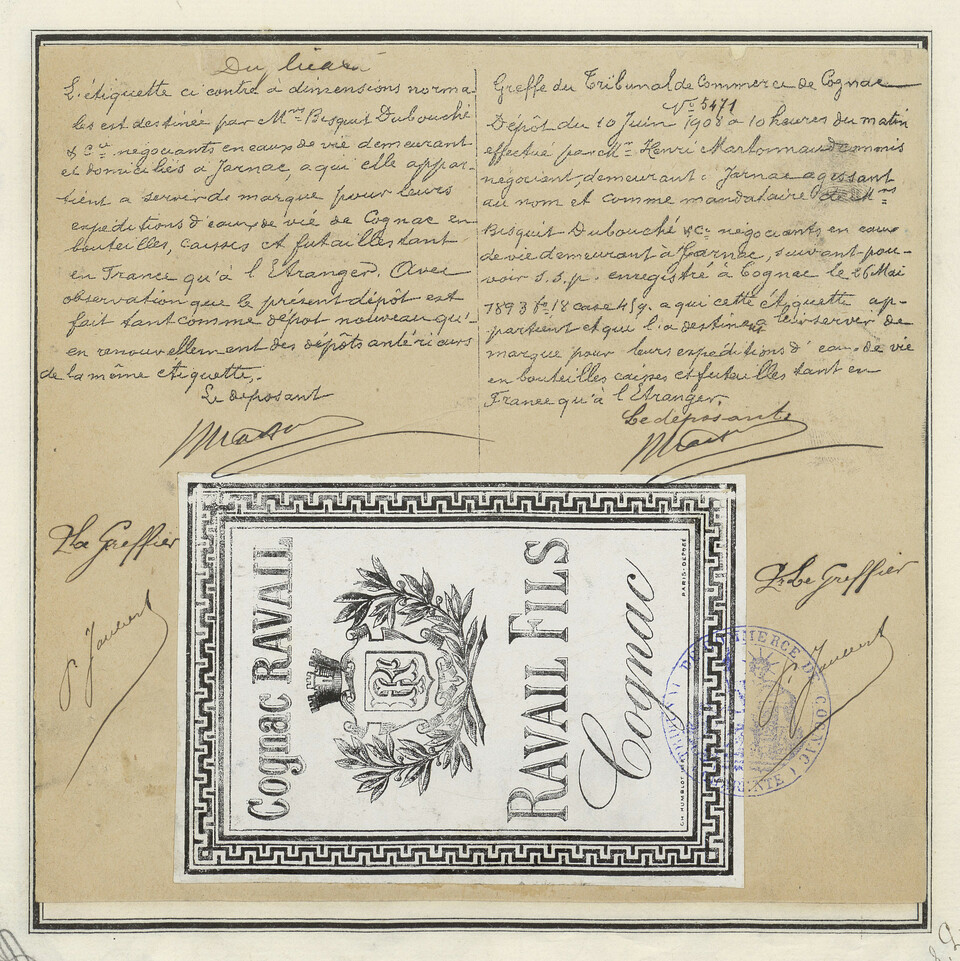 L'étiquette ci contre à dimensions norma-
les est destinée par Mrs Bisquit Dubouché
& Cie négociants en eaux de vie demeurant
et domiciliés à Jarnac, a qui elle appar-
tient a servir de marque pour leurs
expéditions d'eaux de vie de Cognac en
bouteilles, caisses et futailles tant
en France qu'à l'Etranger. Avec
observation que le présent dépôt est
fait tant comme dépot nouveau qu'
en renouvellement des dépôts antérieurs
de la même étiquette.
Le déposant
Greffe du Tribunal de Commerce de Cognac
No 5471
Dépôt du 10 Juin 1908 à 10 heures du matin
effectué par Mr Henri Martonnaud commis
negociant, demeurant Jarnac agissant
au nom et comme mandataire de Mrs
Bisquit Dubouché & Cie négociants en eaux
de vie demeurant à Jarnac, suivant pou-
voir s.s.p. enregistré à Cognac le 26 Mai
1893 fo 18 case 459. a qui cette étiquette ap-
partient et qui l'a destine a servir de
marque pour leurs expéditions d'eaux de vie
en bouteilles caisses et futailles tant en
France qu'à l'Etranger.
Le déposant
Le Greffier
Le Greffier
Cognac RAVAIL
RF
RAVAIL FILS
Cognac
PARIS-DEPOSÉ
COMMERCE DE COGNAC